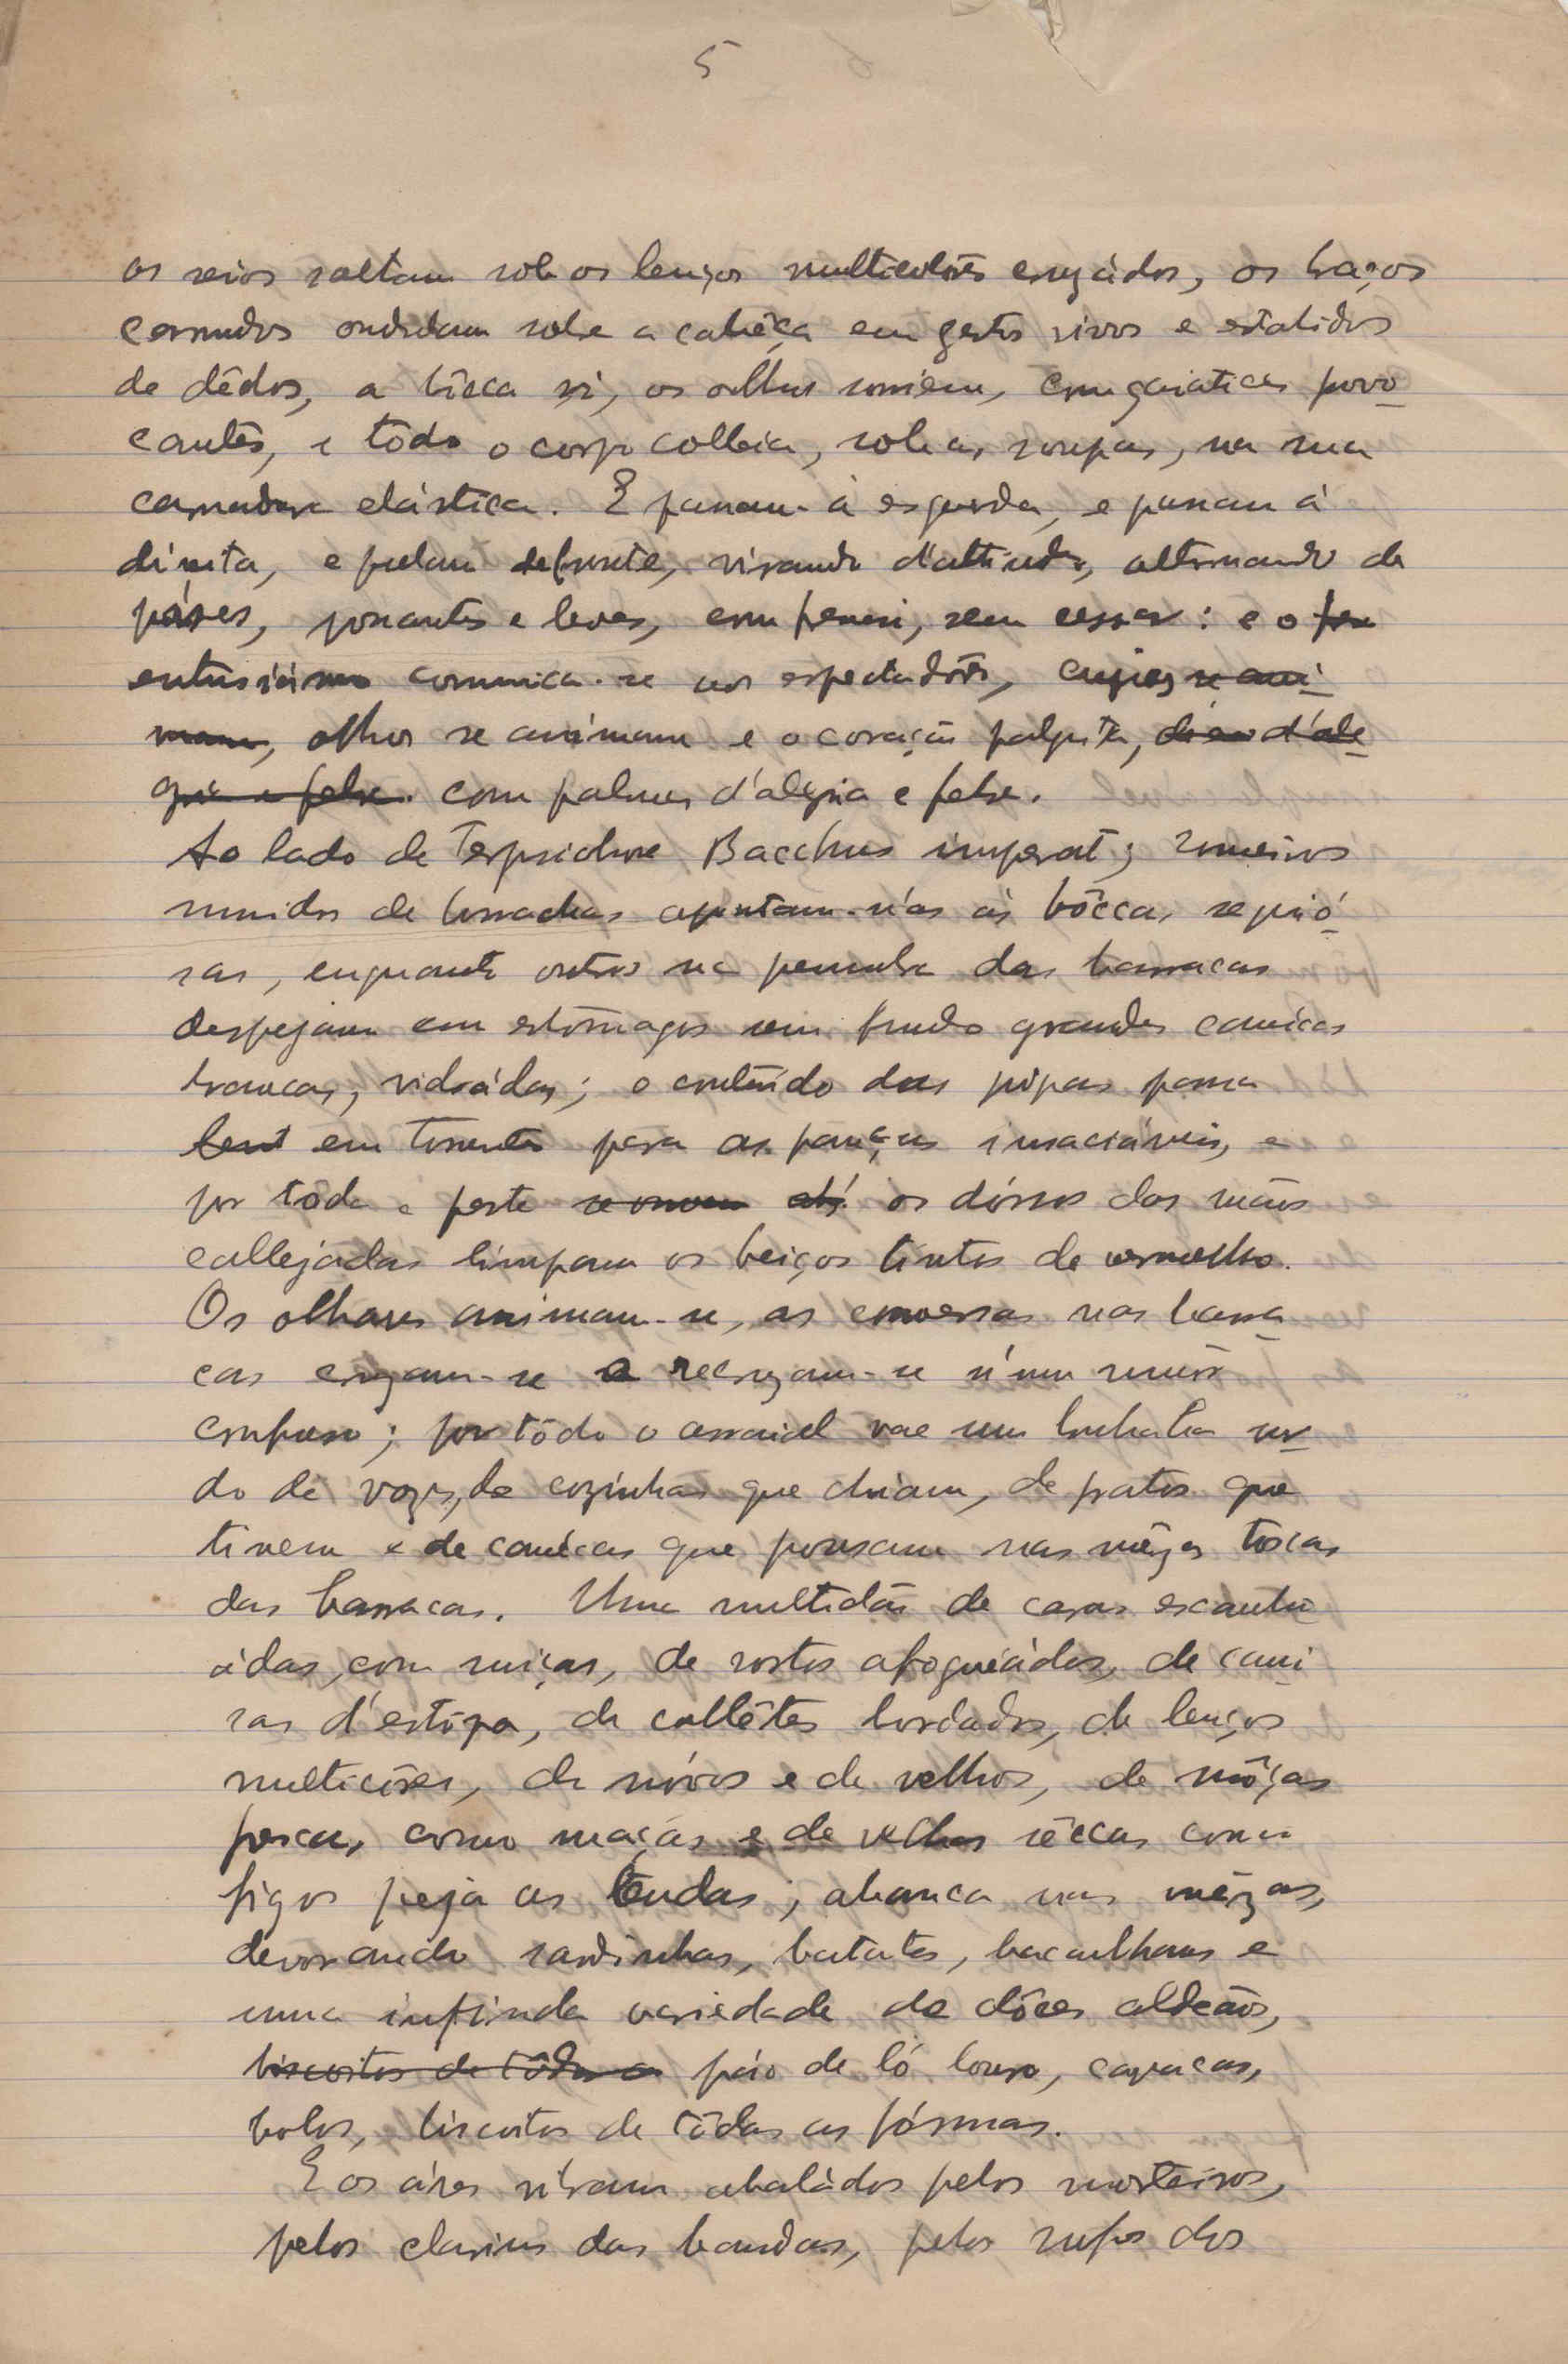 5
os seios saltam sob os lenços multicolôres cruzádos, os braços
carnudos ondulam sobre a cabêça em gestos vivos e estalidos
de dêdos, a bôcca ri, os olhos sorriem, com gaiatices provo
cantes, e tôdo o corpo colleia, sob as roupas, na sua
carnadura elástica. E passam à esquerda, e passam à
direita, e pulam defronte, virando d'attitude, alternando de
páres, possantes e leves, com frenesi, sem cessar: e o seu
entusiásmo comunica-se aos espectadôres, cujos se ani
mam, olhos se animam e o coração palpita, d'ale
gria e febre. com palmas d'alegria e febre.
Ao lado de Terpsichore Bacchus imperat; romeiros
munidos de borrachas apontam-n'as ás bôccas sequió
sas, enquanto outros na penumbra das barracas
despejam em estômagos sem fundo grandes canécas
brancas, vidrádas; o conteúdo das pipas passa
em torrentes para as panças insaciáveis, e
por tôda a parte se ouvem até os dórsos das mãos
callejadas limpam os beiços tintos de vermelho.
Os olhares animam-se, as conversas nas barra
cas cruzam-se e recruzam-se n'um rumôr
confuso; por tôdo o arraial vae um burburinho sur
do de vozes, de cozinhas que chiam, de pratos que
tinem e de canécas que pousam nas mêzas toscas
das barracas. Uma multidão de caras escanho
ádas, com suiças, de rostos afogueádos, de cami
sas d'estôpa, de collêtes bordados, de lenços
multicôres, de nóvos e de velhos, de môças
frescas como maçãs e de velhas sêccas como
figos peja as tendas; abanca nas mêzas,
devorando sardinhas, batatas, bacalhaus e
uma infinda variedade de dôces aldeãos,
biscoitos de tôdas as páo de ló louro, cavacas,
bolos, biscoitos de tôdas as fórmas.
E os áres vibram abaládos pelos morteiros,
pelos clarins das bandas, pelos rufos dos